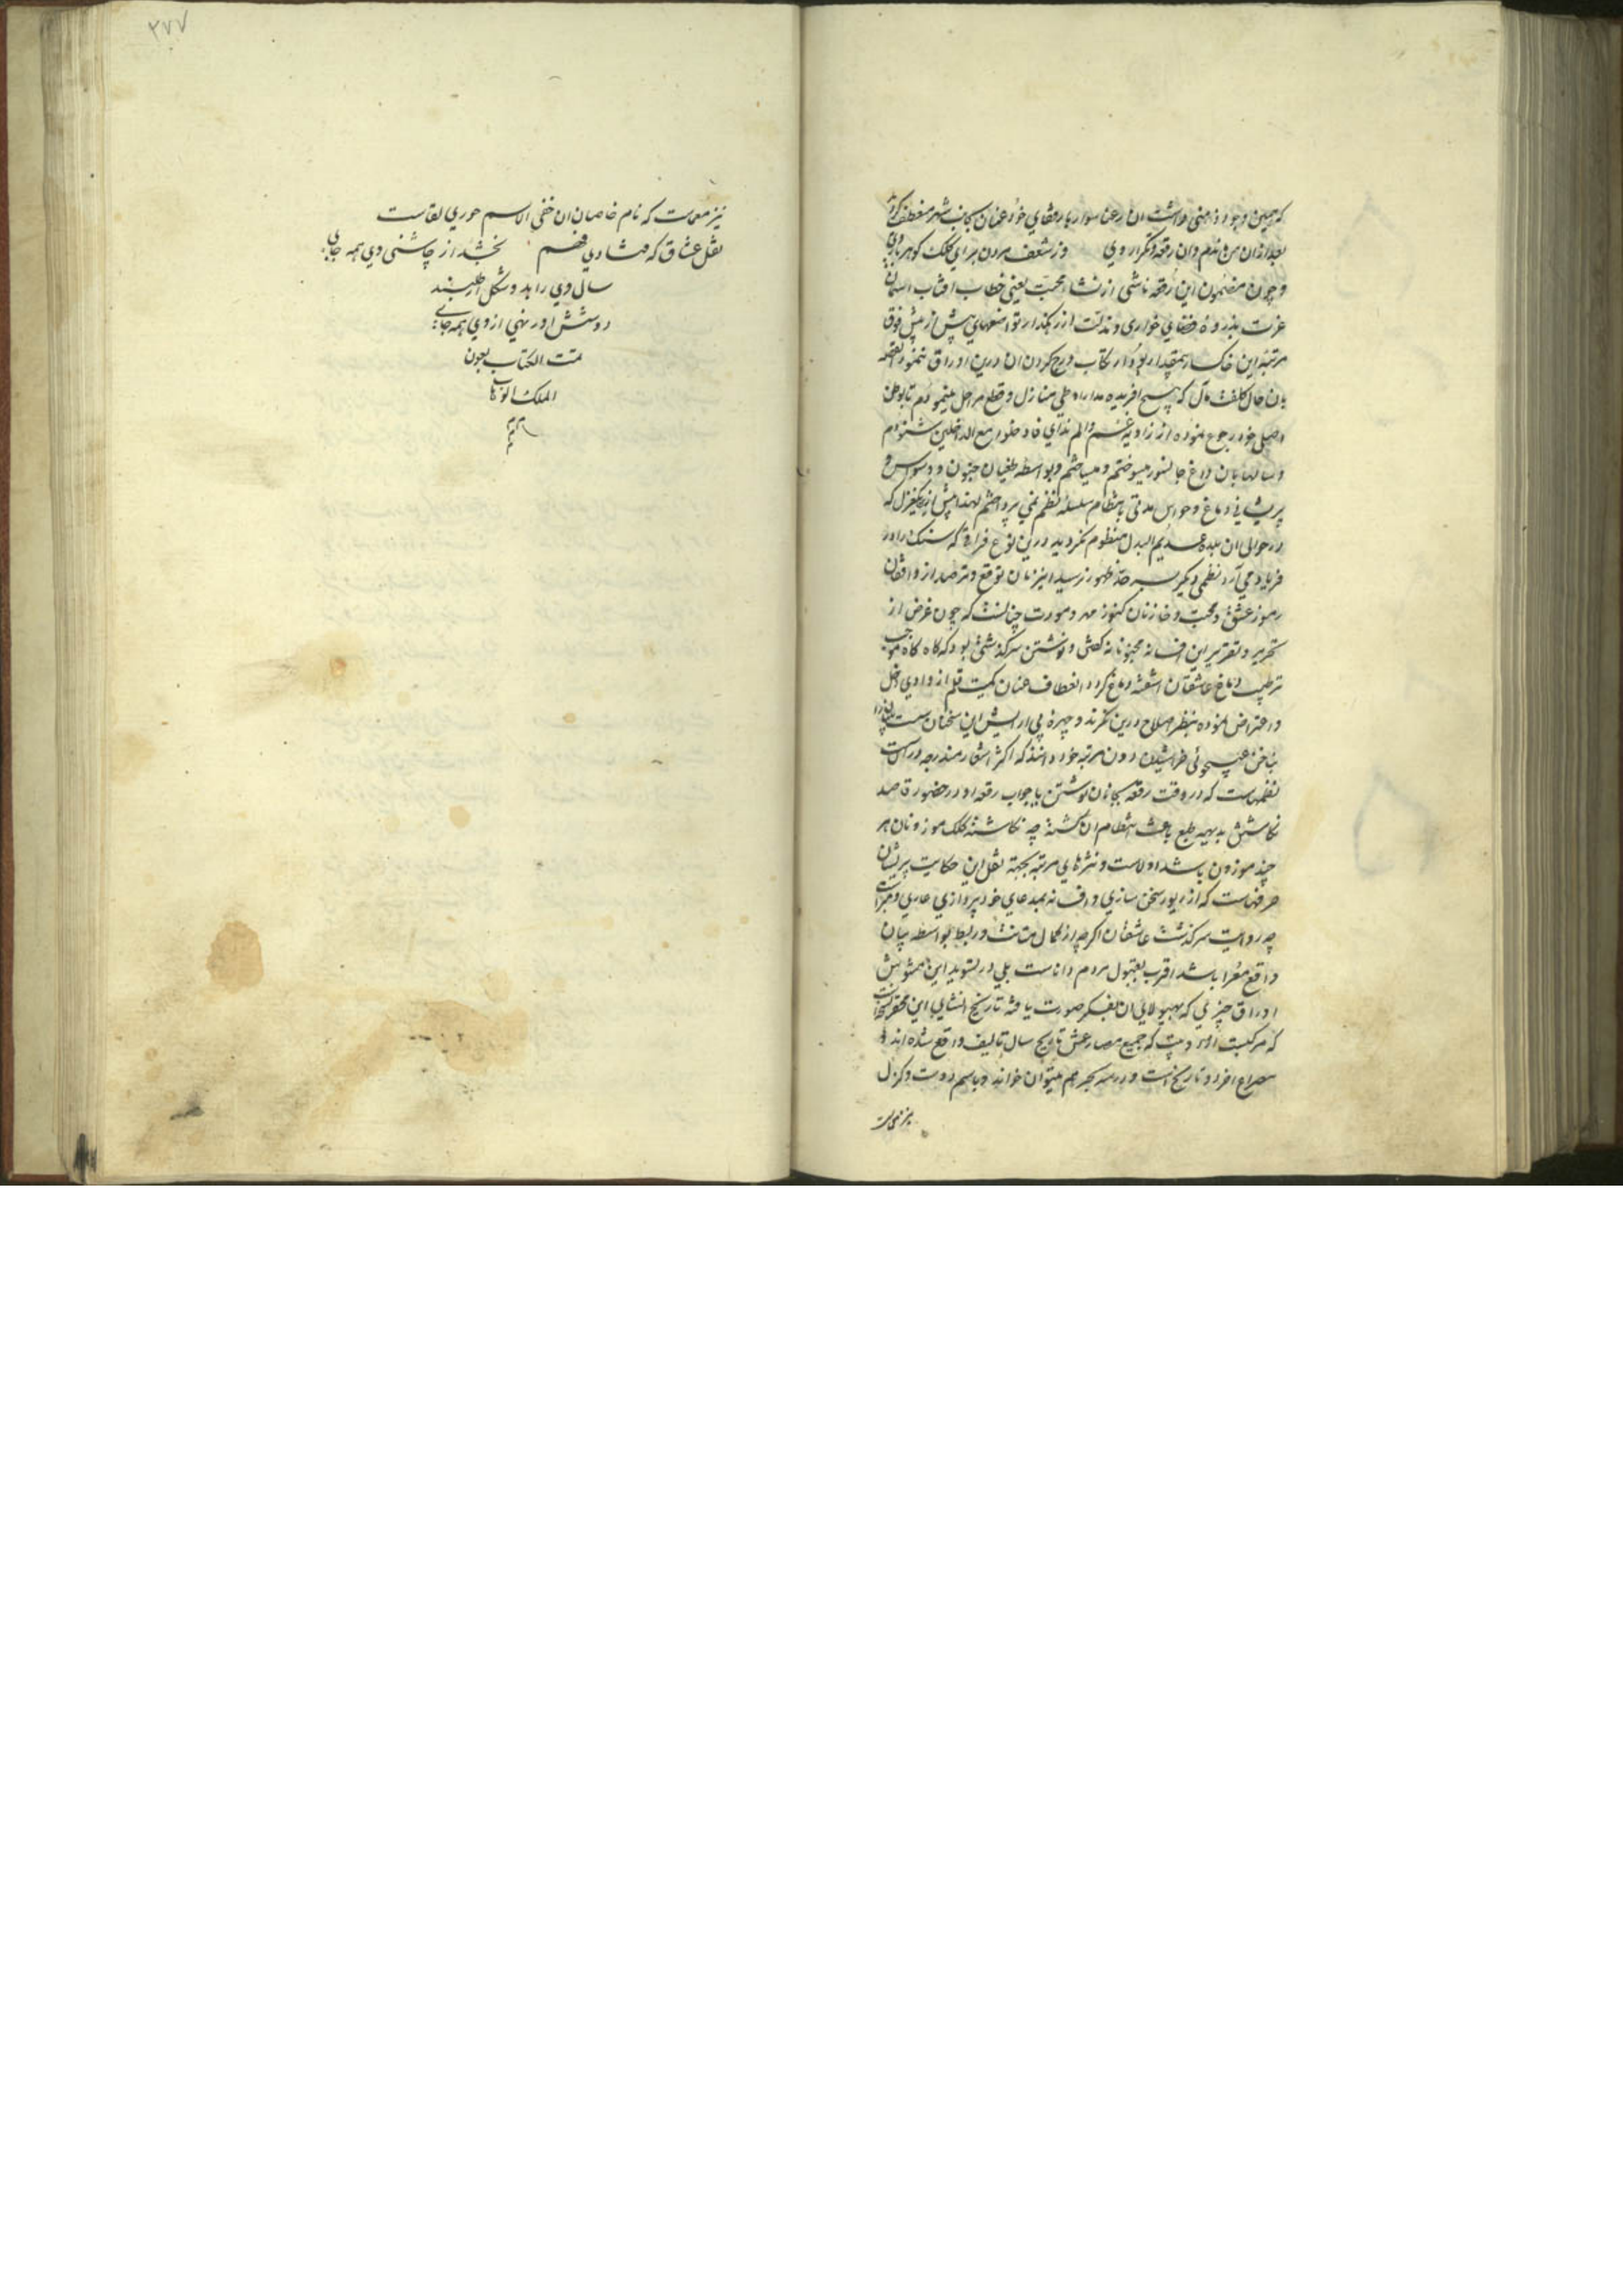 که همین وجود و ذهنی داشت ان رعنا سوار با رفقای خود عنان بجانب شهر منعطف کرد
بعد ازان من ماندم وان رقعه و تکرار وی وز شعف مردن برای کلک کوهر بار وی
و چون مضمون این رقعه ناشی از نشاء محبت یعنی خطاب افتاب اسمان
عزت بذروهٔ خواری و مذلت از رهکذار تواضعهای بیش از پیش فوق
مرتبهٔ این خاکسار بیمقدار بود ارتکاب درج کردن ان درین اوراق ننمود القصه
بان حال کلفت مآل که هیچ افریده مداراه طی منازل و قطع مراحل مینمودم تا بوطن
اصلی خود رجوع نموده از زاویه غم والم ندای فادخلوا مع الداخلین شنودم
و سالها بان داغ جانسوز میسوختم و میساختم و بواسطه طغیان جنون و وسواس و
پریشانی دماغ و حواس مدتی بانتظام سلسلهٔ نظم نمی پرداختم لهذا بیش از یکغزل که
در حوالی ان بلده عدیم البدل منظوم کردید درین نوع فراقی که سنک را در
فریاد می آرد نظمی دیکر بسر حد ظهور نرسید این زمان توقع و ترصد از واقفان
رموز عشق و محبت و خازنان کنوز مهر و مودت چنانست که چون غرض از
تحریر و تقریر این افسانه مجنونانه کفتن و نوشتن سرکذشتی بود که کاه کاه موجب
ترطیب دماغ عاشقان اشفته دماغ کردد انعطاف عنان کمیت قلم از وادی دخل
و اعتراض نموده بنظر اصلاح درین نکرند و چهرهٔ بی ارایش این سخنان سست پیوند را
بناخن عیبجوئی خراشیدن دون مرتبه خود دانند که اکثر اشعار مندرجه در انست
نظمهاست که در وقت رقعه بجانان نوشتن یا جواب رقعه او در حضور قاصد
نکاشتن بدیهه طبع باعث انتظام ان کشته چه نکاشتهٔ کلک موزونان هر
چند موزون باشد اولاست و نثرهای مرتبه بجهة نقل این حکایت پریشان
حرفهاست که از زیور سخن سازی و افسانه بمدعای خود پردازی عاری و مبراست
چه روایت سرکذشت عاشقان اکرچه از کمال متانت و ربط بواسطه بیان
واقع معرا باشد اقرب بقبول مردم داناست بلی در تسوید این مشوش
اوراق چیزی که بهیولای ان بفکر صورت یافته تاریخ انشای این محقر نسخه است
که مرکبست از دو بیت که جمیع مصارعش تاریخ سال تالیف واقع شده اند و
مصراع اخر دو تاریخ است و در سه بحر هم میتوان خواند و باسم دوست و کزل
نیز معماست
۳۷۷
نیز معماست که نام خاصان ان خفی الاسم حوری لقاست
نقل عشاق که شادی فهم بخشد از چاشنی وی همه جای
سال وی را بد و شکل ار طلبند
دوستش اور نهی از وی همه جای
تمت الکتاب بعون
الملک الوهاب